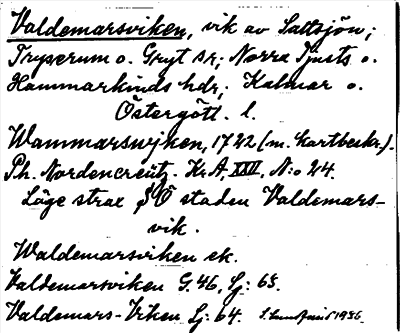 Valdemarsviken, vik av Saltsjön;
Tryserum o. Gryt sr; Norra Tjusts o.
Hammarkinds hdr, Kalmar o.
Östergötl. l.
Wammarswijken, 1722 (m. kartbeskr.).
Ph. Nordencreutz. KrA, XXII, N:o 24.
Läge strax Ö staden Valdemars-
vik.
Waldemarsviken ek.
Valdemarsviken G.46, Lj: 63.
Valdemars-Viken Lj: 64. 1936.